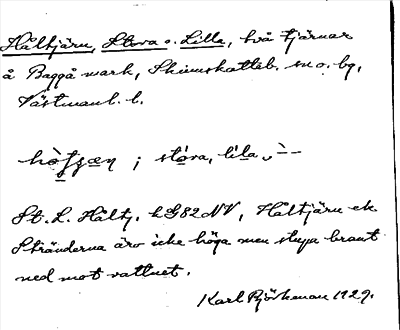 Håltjärn, Stora o. Lilla, två tjärnar
å Baggå mark, Skinnskatteb. sn o. bg,
Västmanl. l.
; stora, lila
St. L. Håltj. kG82NV, Håltjärn ek
Stränderna äro icke höga men stupa brant
ned mot vattnet.
Karl Björkman 1929.